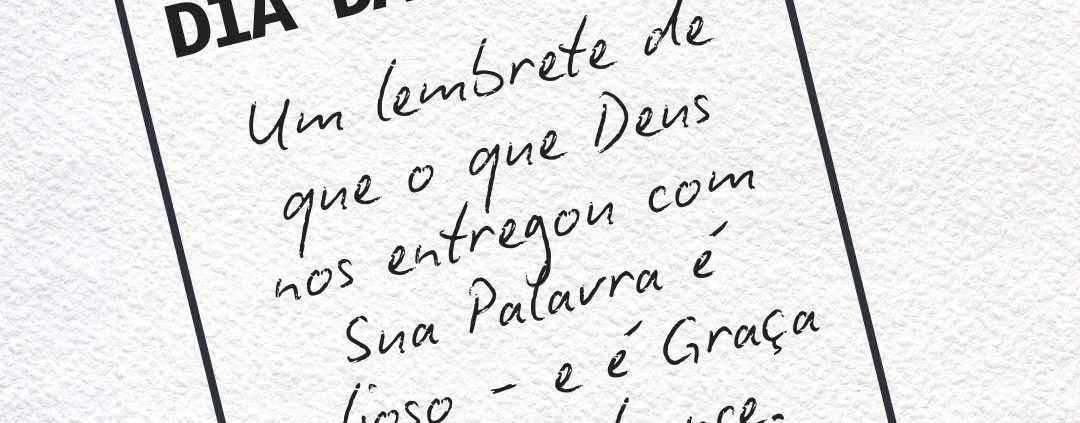 DIA
Um lembrete de
que o que Deus
nos entregou com
Sua Palavra é
- e é Graça